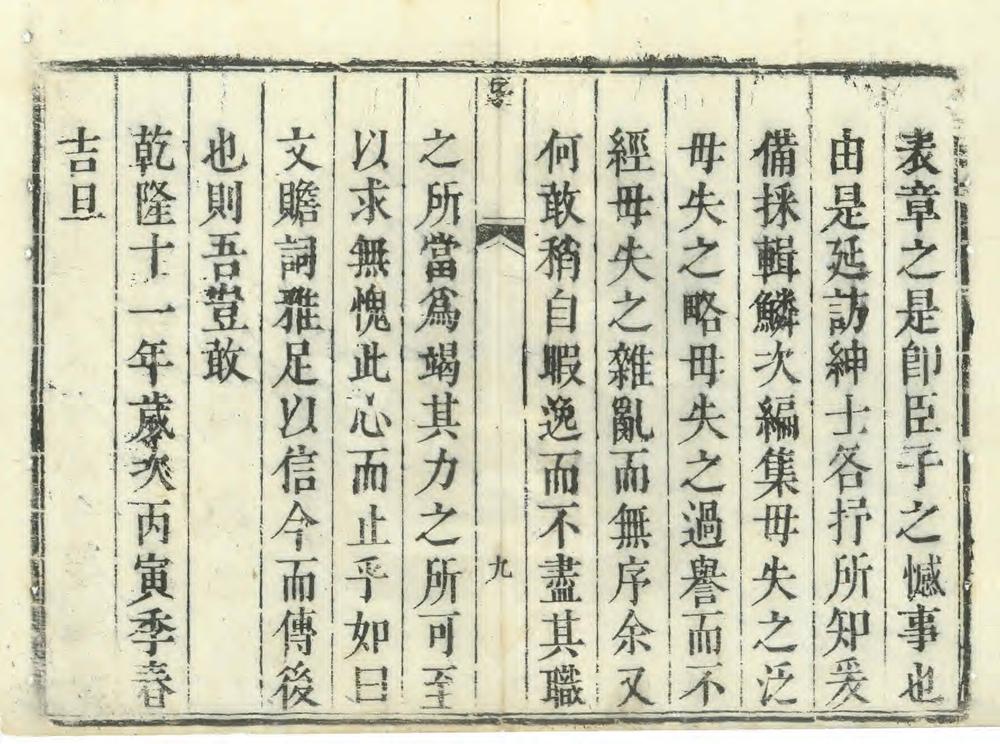 表章之是即臣子之憾事也
由是延訪紳士各抒所知爰
備採輯鱗次編集毋失之泛
毋失之略毋失之過譽而不
經毋失之雜亂而無序余又
何敢稍自暇逸而不盡其職
九
之所當爲竭其力之所可至
以求無愧此心而止乎如曰
文贍詞雅足以信今而傳後
也則吾豈敢
乾隆十一年歲次丙寅季春
吉旦